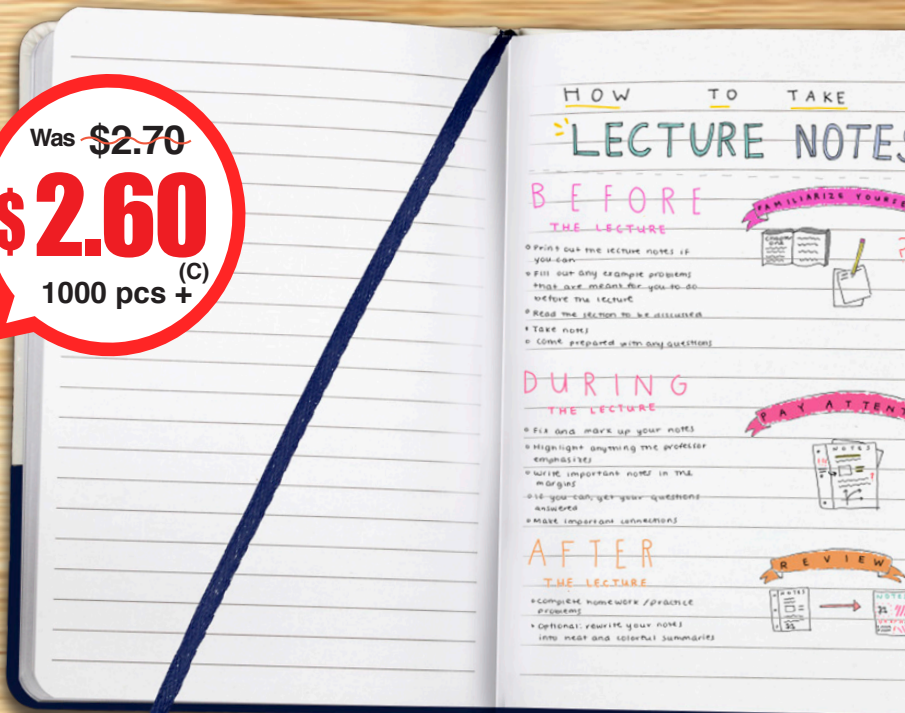 Was $2.70
$2.60
(C)
1000 pcs +
HOW TO TAKE
LECTURE NOTES
BEFORE
THE LECTURE
Print out the lecture notes if
you can
Fill out any example problems
that are meant for you to do
before the lecture
Read the section to be discussed
Take notes
Come prepared with any questions
FAMILIARIZE YOURSE
Chapter
one
?
DURING
THE LECTURE
Fix and mark up your notes
Highlight anything the professor
emphasizes
Write important notes in the
margins
If you can, get your questions
answered
Make important connections
PAY ATTENT
NOTES
AFTER
THE LECTURE
Complete homework / practice
problems
Optional: rewrite your notes
into neat and colorful summaries
REVIEW
NOTES
NOTES